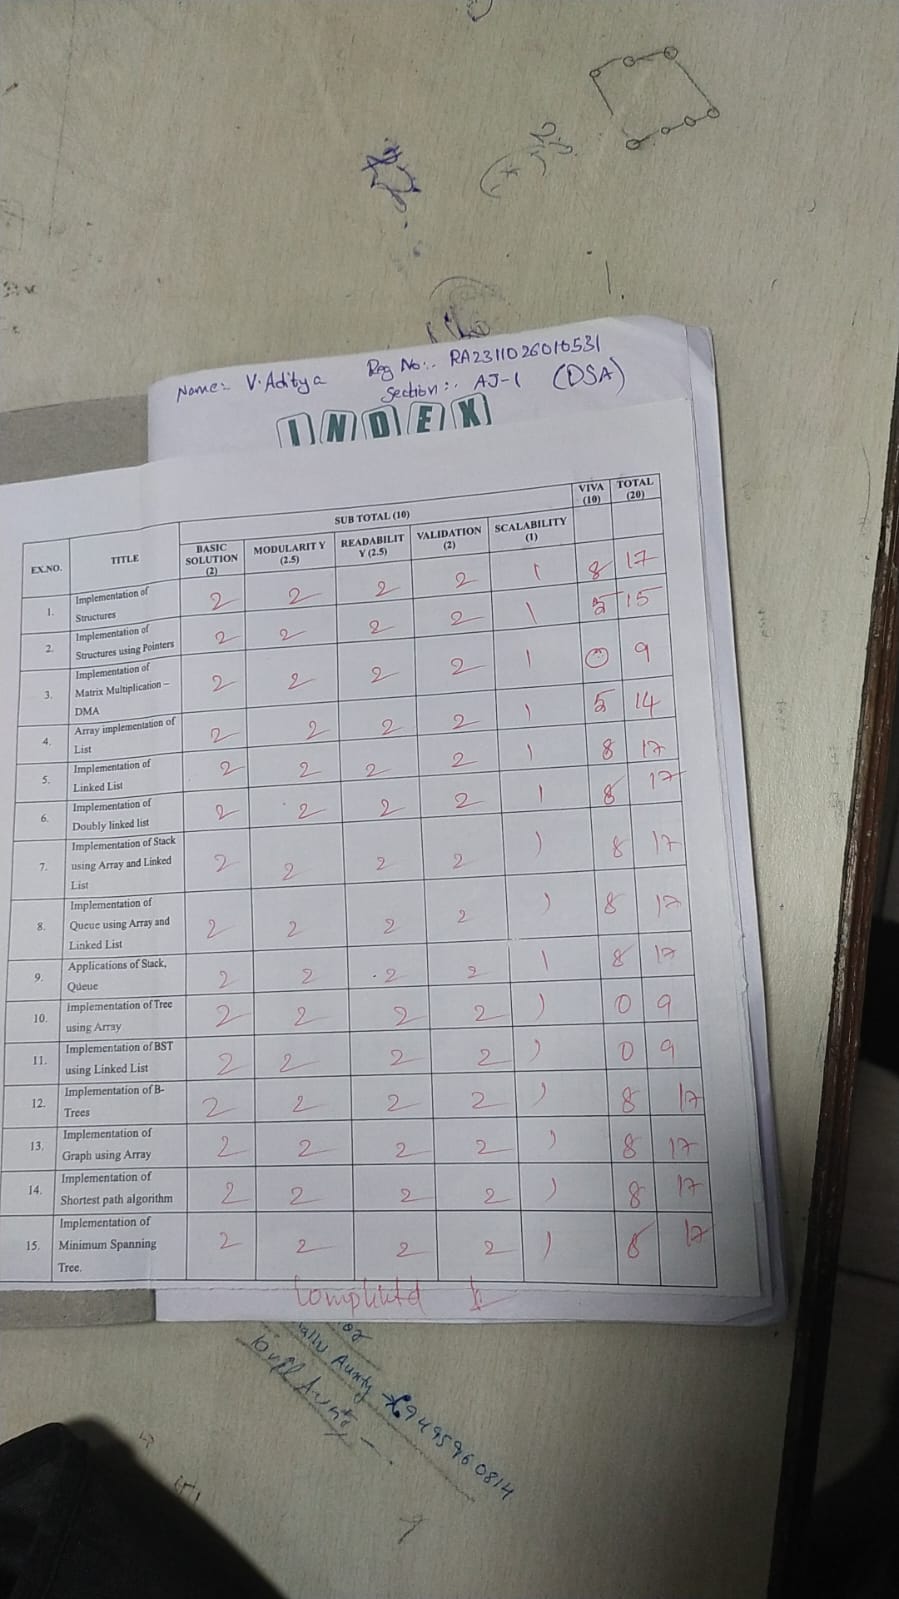 Name:- V.Aditya Reg No:- RA2311026010531
Section:- AJ-1 (DSA)
INDEX
EX.NO. TITLE SUB TOTAL (10) VIVA (10) TOTAL (20)
BASIC SOLUTION (2) MODULARIT Y (2.5) READABILIT Y (2.5) VALIDATION (2) SCALABILITY (1)
1. Implementation of Structures 2 2 2 2 1 8 17
2. Implementation of Structures using Pointers 2 2 2 2 1 5 15
3. Implementation of Matrix Multiplication – DMA 2 2 2 2 1 0 9
4. Array implementation of List 2 2 2 2 1 5 14
5. Implementation of Linked List 2 2 2 2 1 8 17
6. Implementation of Doubly linked list 2 2 2 2 1 8 17
7. Implementation of Stack using Array and Linked List 2 2 2 2 1 8 17
8. Implementation of Queue using Array and Linked List 2 2 2 2 1 8 17
9. Applications of Stack, Queue 2 2 2 2 1 8 17
10. Implementation of Tree using Array 2 2 2 2 1 0 9
11. Implementation of BST using Linked List 2 2 2 2 1 0 9
12. Implementation of B-Trees 2 2 2 2 1 8 17
13. Implementation of Graph using Array 2 2 2 2 1 8 17
14. Implementation of Shortest path algorithm 2 2 2 2 1 8 17
15. Implementation of Minimum Spanning Tree. 2 2 2 2 1 8 17
Completed
Aunty
9495960814